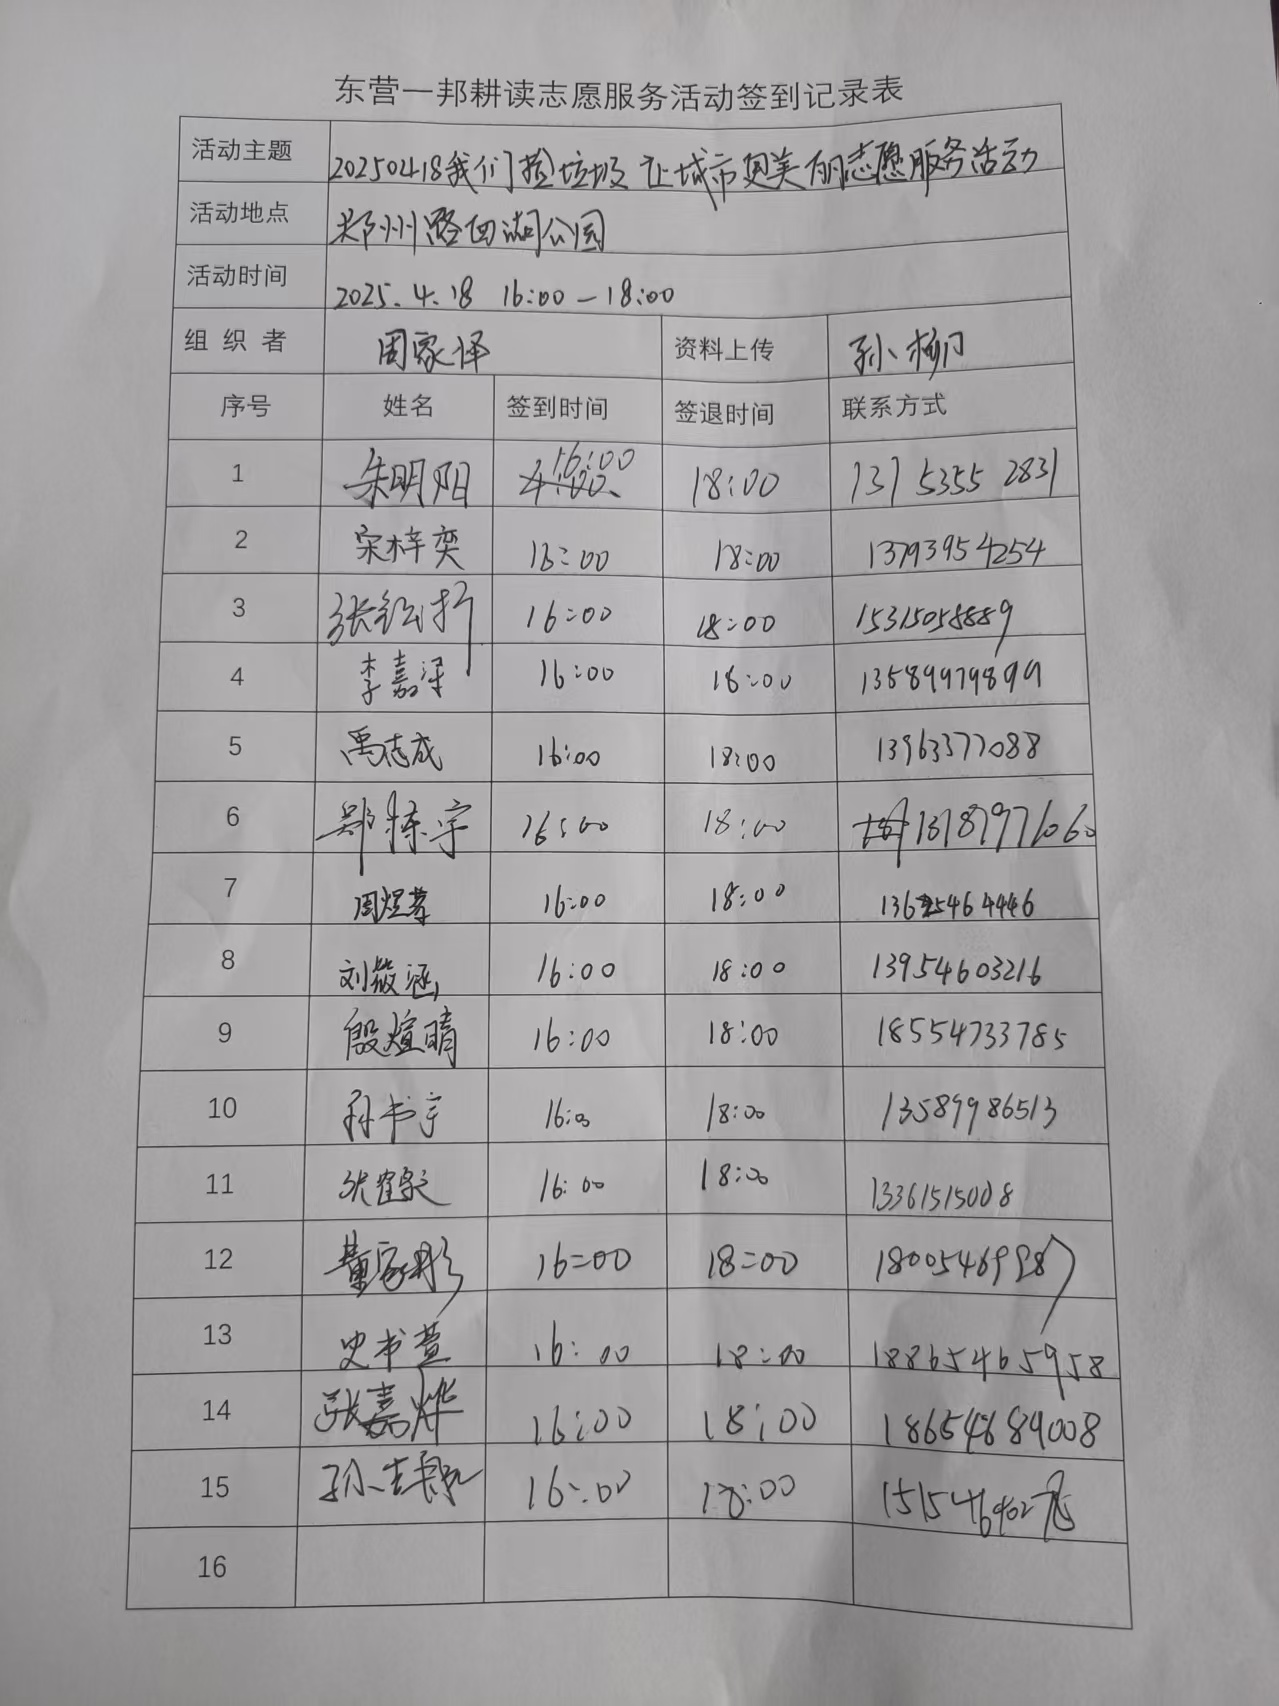 东营一邦耕读志愿服务活动签到记录表
活动主题 20250418我们捡垃圾 让城市更美丽志愿服务活动
活动地点 郑州路西湖公园
活动时间 2025.4.18 16:00-18:00
组织者 周家译 资料上传 孙杨
序号 姓名 签到时间 签退时间 联系方式
1 朱明阳 16:00 18:00 137 5355 2831
2 宋梓奕 16:00 18:00 13793954254
3 张 16:00 18:00 15315058889
4 李嘉泽 16:00 18:00 13589979899
5 禹志成 16:00 18:00 13963377088
6 郑栋宇 16:00 18:00
7 周煜 16:00 18:00
8 刘筱涵 16:00 18:00 13954603216
9 殷煊晴 16:00 18:00 18554733785
10 孙书宇 16:00 18:00 13589986513
11 张 16:00 18:00 13361515008
12 董家彤 16:00 18:00 18005469987
13 史书萱 16:00 18:00 18865465958
14 张嘉烨 16:00 18:00 18654689008
15 孙 16:00 18:00
16